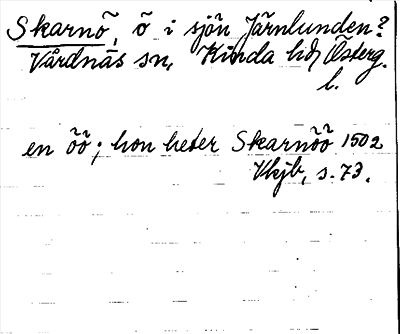 Skarnö, ö i sjön Järnlunden?
Vårdnäs sn, Kinda hd, Österg.
l.
en öö; hon heter Skarnöö 1502
Vkjb, s. 73.